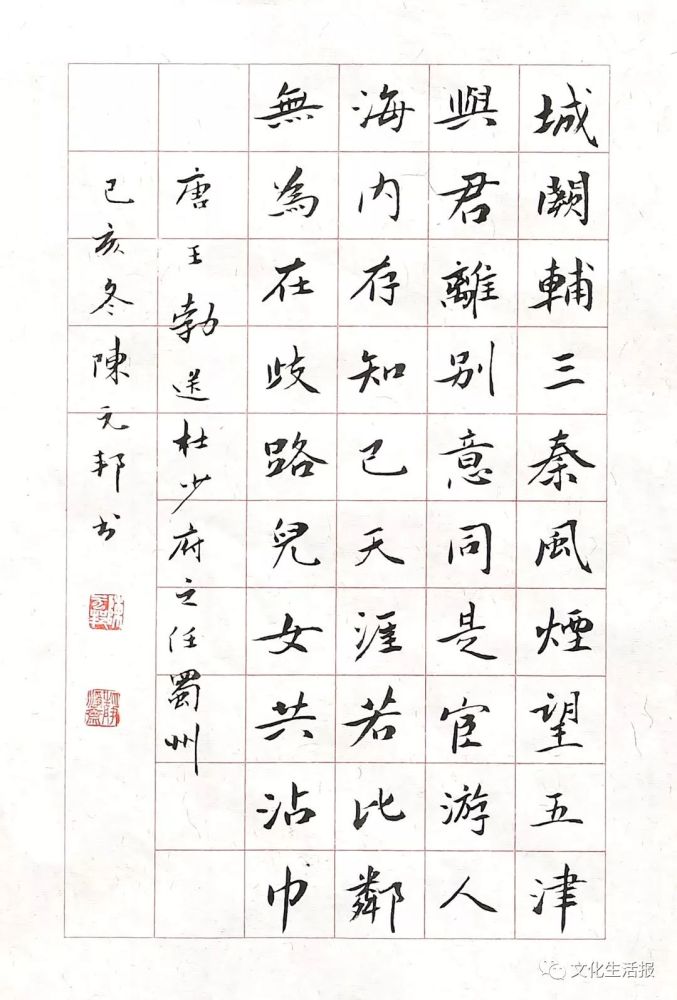 城闕輔三秦風煙望五津
與君離別意同是宦游人
海内存知己天涯若比鄰
無為在歧路兒女共沾巾
唐王勃送杜少府之任蜀州
己亥冬陳元邦书
文化生活报